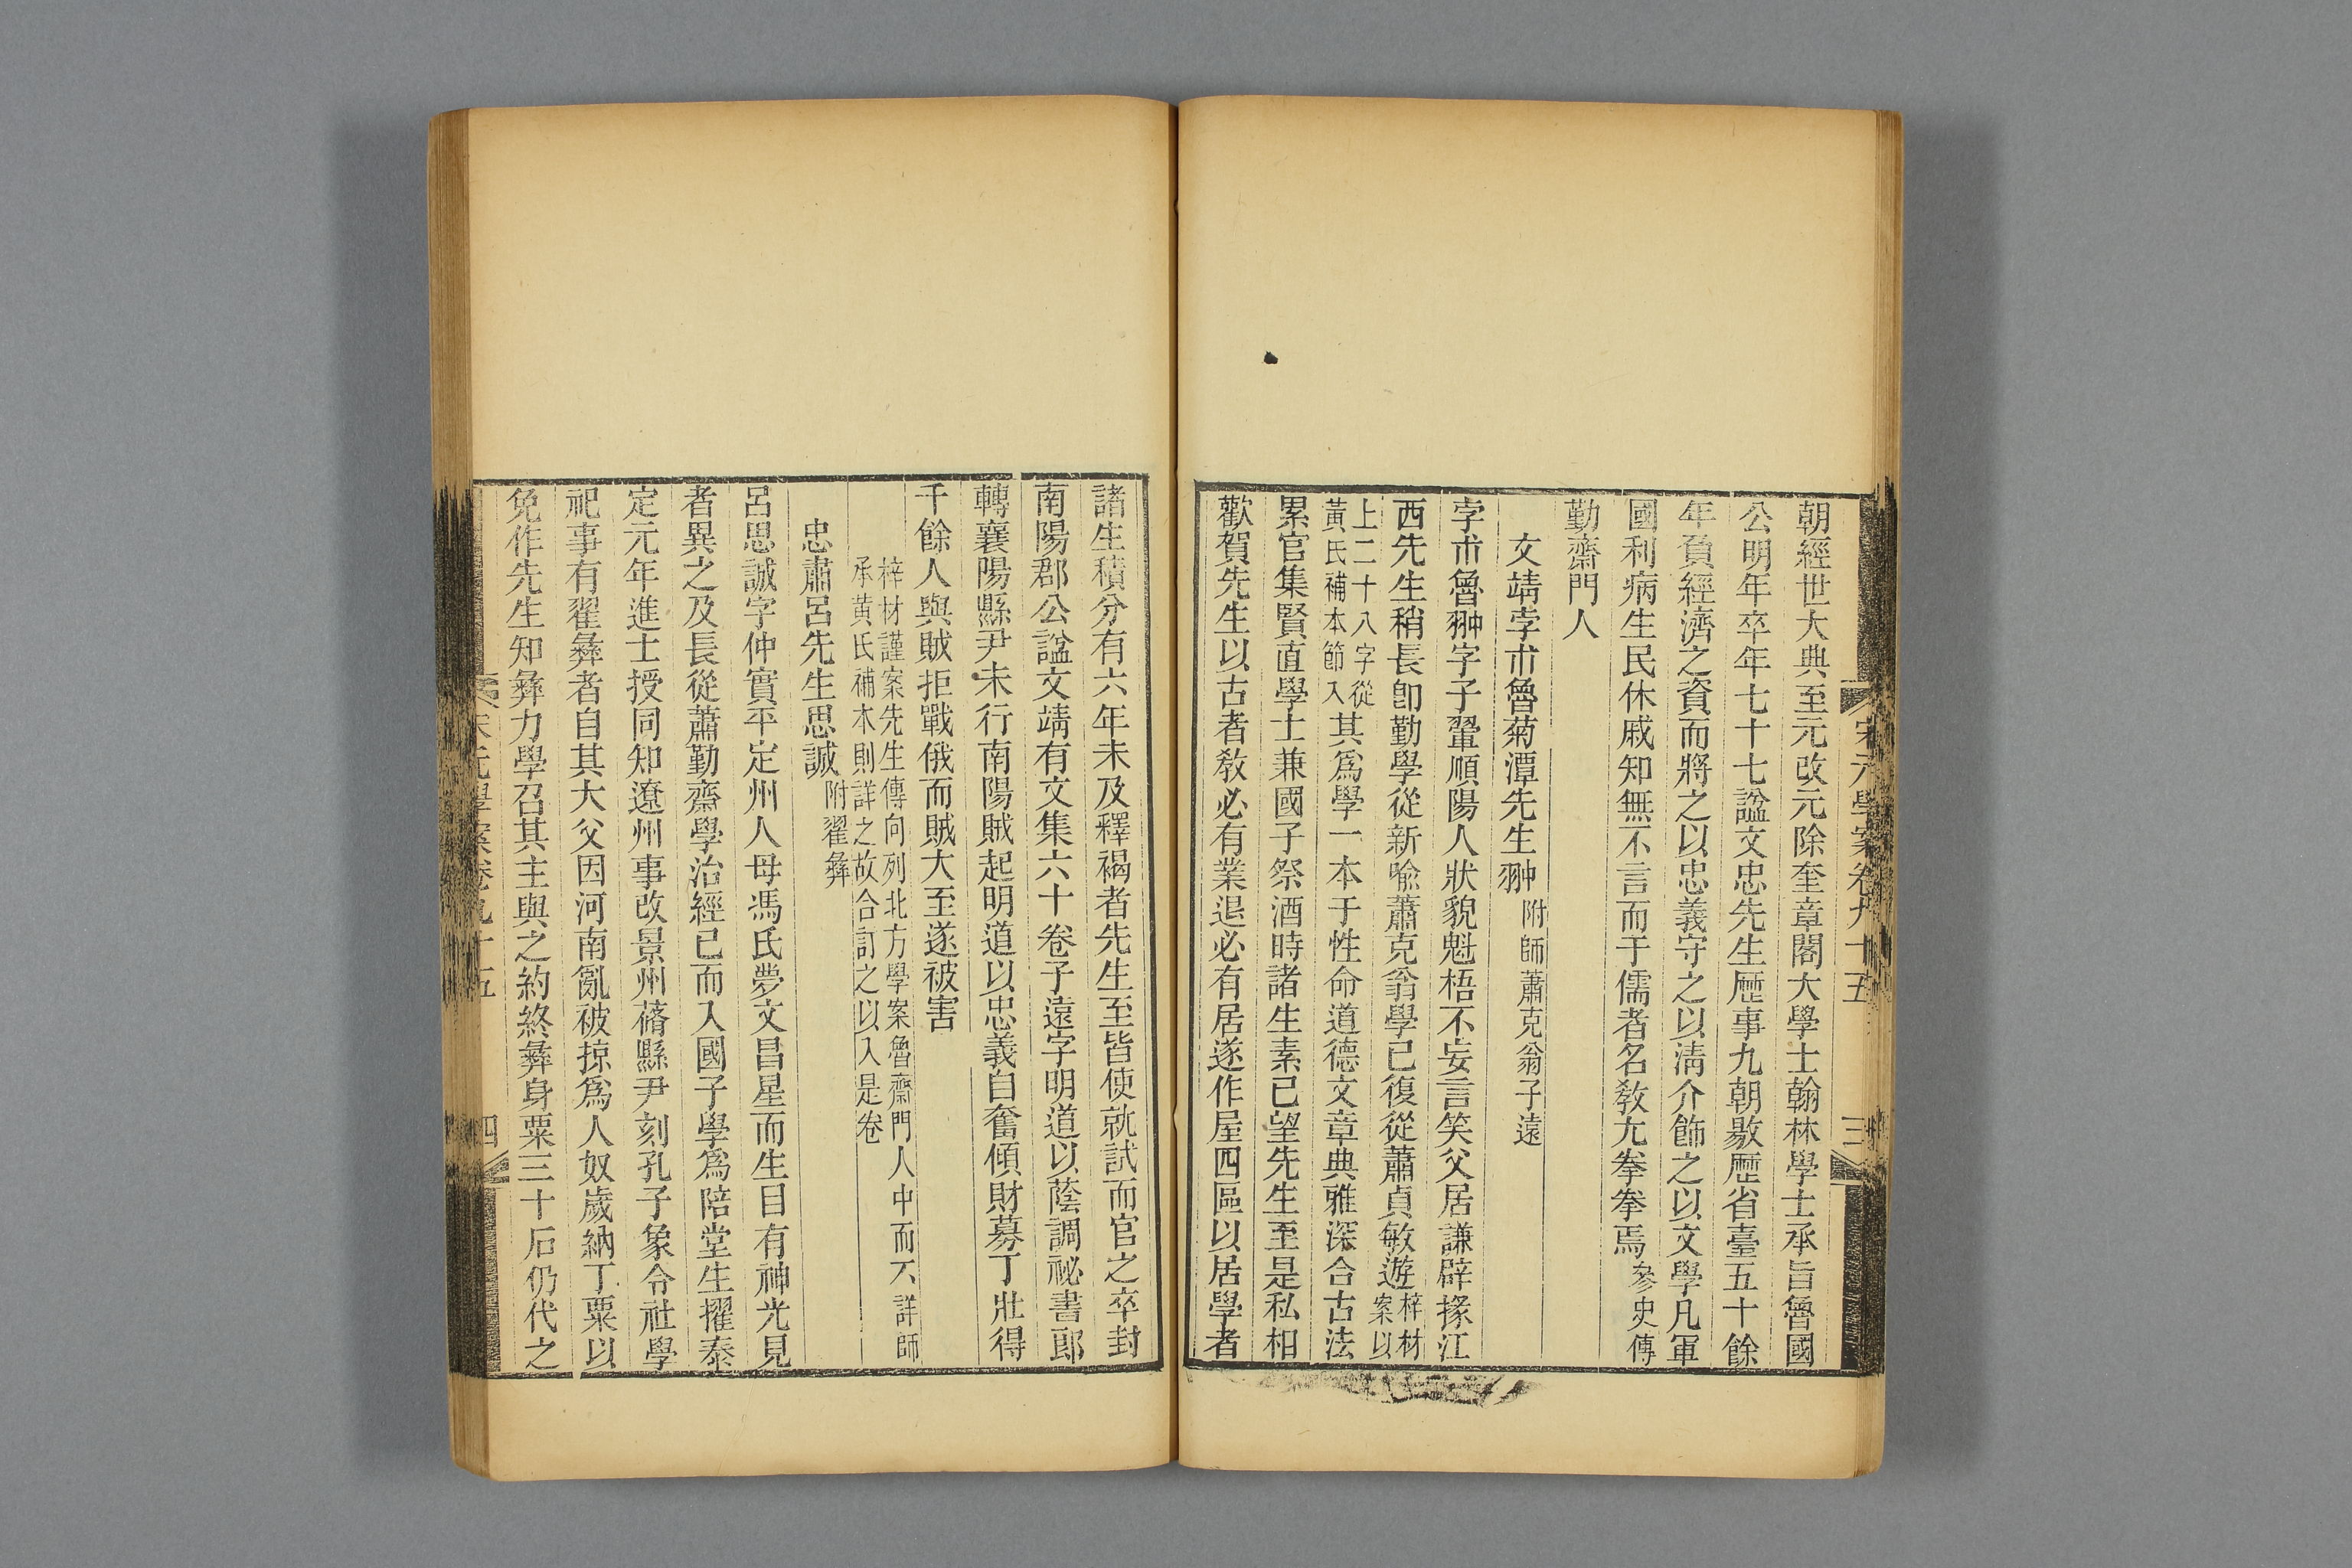 宋元學案卷九十五
三
朝經世大典至元改元除奎章閣大學士翰林學士承旨魯國
公明年卒年七十七諡文忠先生歷事九朝敭歷省臺五十餘
年負經濟之資而將之以忠義守之以清介飾之以文學凡軍
國利病生民休戚知無不言而于儒者名敎尤拳拳焉參史傳
勤齋門人
文靖孛朮魯菊潭先生翀附師蕭克翁子遠
孛朮魯翀字子翬順陽人狀貌魁梧不妄言笑父居謙辟掾江
西先生稍長卽勤學從新喩蕭克翁學已復從蕭貞敏遊梓材案以
上二十八字從黃氏補本節入其爲學一本于性命道德文章典雅深合古法
累官集賢直學士兼國子祭酒時諸生素已望先生至是私相
歡賀先生以古者敎必有業退必有居遂作屋四區以居學者
諸生積分有六年未及釋褐者先生至皆使就試而官之卒封
南陽郡公諡文靖有文集六十卷子遠字明道以蔭調祕書郎
轉襄陽縣尹未行南陽賊起明道以忠義自奮傾財募丁壯得
千餘人與賊拒戰俄而賊大至遂被害
梓材謹案先生傳向列北方學案魯齋門人中而不詳師
承黃氏補本則詳之故合訂之以入是卷
忠肅呂先生思誠附翟彝
呂思誠字仲實平定州人母馮氏夢文昌星而生目有神光見
者異之及長從蕭勤齋學治經已而入國子學爲陪堂生擢泰
定元年進士授同知遼州事改景州蓨縣尹刻孔子象令社學
祀事有翟彝者自其大父因河南亂被掠爲人奴歲納丁粟以
免作先生知彝力學召其主與之約終彝身粟三十石仍代之
宋元學案卷九十五
四